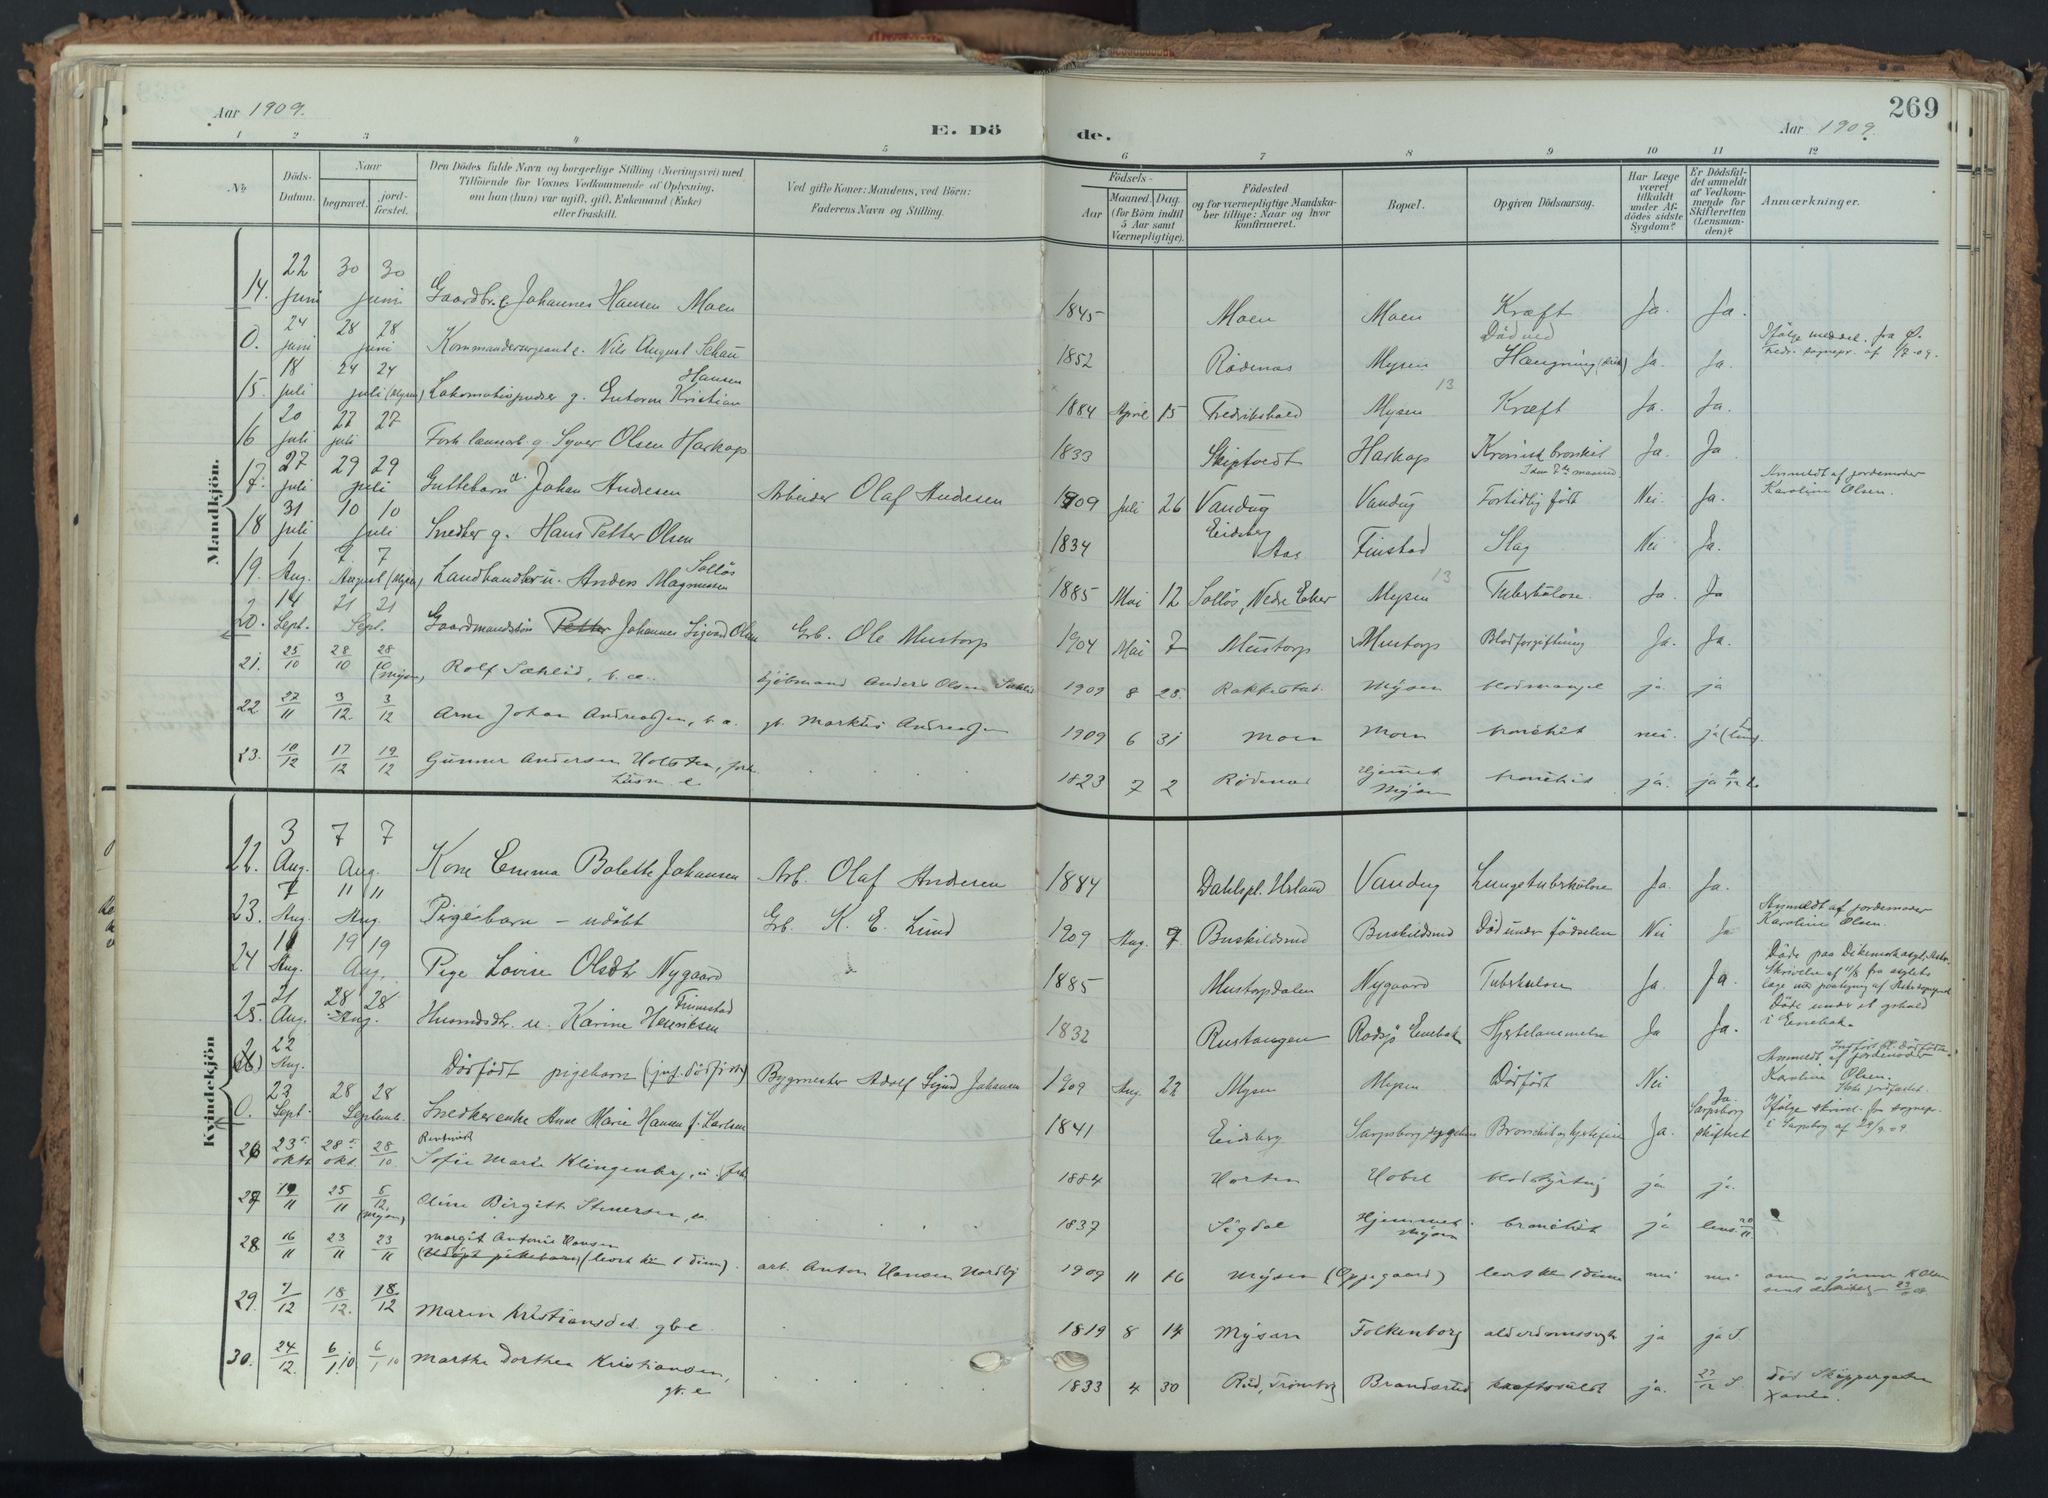 Aar 1909.
E. Dö
de.
Aar 1909.
269
1 2 3 4 5 6 7 8 9 10 11 12
No
Döds-
Datum.
Naar
begravet.
jord-
fæstet.
Den Dödes fulde Navn og borgerlige Stilling (Næringsvei) med
Tilföiende for Voxnes Vedkommende af Oplysning,
om han (hun) var ugift, gift, Enkemand (Enke)
eller fraskilt.
Ved gifte Koner: Mandens, ved Börn:
Faderens Navn og Stilling.
Födsels-
Aar
Maaned. Dag.
(for Börn indtil
5 Aar samt
Værnepligtige).
Födested
og for værnepligtige Mandska-
ber tillige: Naar og hvor
konfirmeret.
Bopæl.
Opgiven Dödsaarsag.
Har Læge
været
tilkaldt
under Af-
dödes sidste
Sygdom?
Er Dödsfal-
det anmeldt
af Vedkom-
mende for
Skifteretten
(Lensman-
den)?
Anmærkninger.
Mandkjön.
14. 22 juni 30 30 juni Gaardbr. e. Johannes Hansen Moen 1845 Moen Moen Kræft Ja. Ja.
0. 24 juni 28 28 juni Kommandersergeant e. Nils August Schau 1852 Rödenes Mysen Död ved Hængning Ja. Ja. Ifölge meddel. fra Ø. Fredr. sognepr. af 1/7-09.
15. 18 juli 24 24 juli (Mysen) Lokomotivpudser g. Kristian Hansen 1884 April 15 Fredrikshald Mysen 13 Kræft Ja. Ja.
16 20 juli 27 27 juli Forh. g. Syver Olsen Harkop 1833 Skiptvedt Harkop Kronisk bronkit Ja. Ja
17. 27 juli 29 29 juli Guttebarn Johan Andresen Arbeider Olaf Andresen 1909 Juli 26 Vandug Vandug Fortidlig född I den 7de maaned Nei Ja. Anmeldt af jordemoder Karoline Olsen.
18 31 juli 10 10 juli Snedker g. Hans Petter Olsen 1834 Eidsberg Aas Finstad Slag Nei Ja.
19. 1 Aug. 7 7 August (Mysen) Landhandler u. Anders Magnussen Solløs 1885 Mai 12 Solløs, Nedre Eker Mysen 13 Tuberkulose. Ja. Ja
20. 14 Sept. 21 21 Sept. Gaardmandssön Petter Johannes Sigvad Olsen Grb. Ole Mustorp 1904 Mai 7 Mustorp Mustorp Blodforgiftning Ja. Ja.
21. 25/10 28/10 28/10 (Mysen) Rolf Sæhlid, b. æ. kjöbmand Anders Olsen Sæhlid 1909 8 25. Rakkestad Mysen blodmangel ja ja
22. 27/11 3/12. 3/12 Arne Johan Andreassen, b. æ. gb. Markus Andreassen 1909 6 31 Moen Moen bronchit nei. ja
23. 10/12 17/12 19/12 Gunner Andersen Holsten, forh. husm. e. 1823 7 2 Rödenes Hjemmet Mysen bronchit ja. ja
Kvindekjön
22. 3 Aug. 7 7 Aug. Kone Emma Bolette Johansen Arb. Olaf Andresen 1884 Dahlspl. Vandug Lungetuberkulose Ja. Ja.
23. 7 Aug. 11 11 Aug. Pigebarn – udöbt Grb. K. E. Lund 1909 Aug. 7. Buskildsrud Buskildsrud Död under födselen Nei Ja Anmeldt af jordemoder Karoline Olsen.
24 Aug. 19 19 Aug. Pige Lovise Olsdtr Nygaard 1885 Mustorpdalen Nygaard Tuberkulose Ja. Ja. Döde paa Dikemark
25. 21 Aug. 28 28 Aug. Husmdsdtr. u. Karine Henriksen Finnestad 1832 Rustangen Enebak Hjertelammelse Ja Ja. Döde under et i Enebak.
22 Aug. Dödfödt pigebarn Bygmester Adolf Johansen 1909 Aug. 22 Mysen Mysen Dödfödt Nei Anmeldt af jordemoder Karoline Olsen. Ikke jordfæstet.
0. 23 Sept. 28 28 Septemb. Snedkerenke Anne Marie Hansen f. Karlsen 1841 Eidsberg Sarpsborg sygehus Bronchit og hjertefeil Ja. Ja. Sarpsborg skifteret Ifölge skrivel. fra sognepr. i Sarpsborg af 29/9.09
26 23 okt 28 okt. 28/10 Sofie Marie Klingenberg, u. 1884 Horten Hobøl blodstyrtnig ja. ja.
27 19/11 25/11 5/12. (Mysen) Oline Birgitte Stenersen, u. 1837 Sigdal Hjemmet Mysen bronchit ja lens 20/11
28. 16/11 23/11 23/11 Margit Antonie Hansen (Udöpt pikebarn) (levet kun 1 dim) arb. Anton Hansen Nordby 1909 11 16 Mysen (Oppegaard) levet kun 1 dime
29. 7/12 18/12. 18/12 Maren Kristiansdat. gbe. 1819 8 14 Mysen Folkenborg alderdomssvaghet ja ja
30. 24/12. 6/1.10 6/1 10 Marthe Dorthea Kristiansen, gb. e 1833 4 30 Rud, Trömborg Brandsrud kræftsvulst ja. 27/12 död